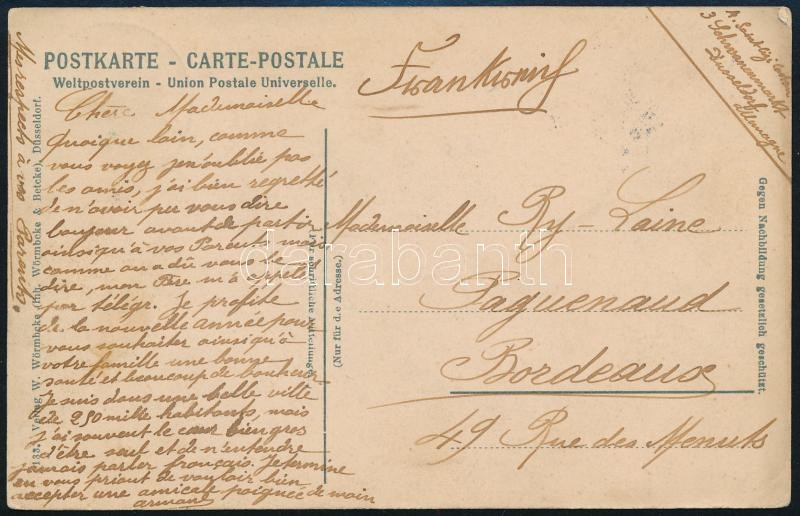 POSTKARTE - CARTE-POSTALE
Weltpostverein - Union Postale Universelle.
Frankreich
3 Schwanenmarkt
Düsseldorf
Allemagne
Chère Mademoiselle
Quoique loin, comme
vous voyez j'en'oublié pas
les amis, j'ai bien regretté
de n'avoir pu vous dire
bonjour avant de partir
ainsiqu'à vos Parents mais
comme on a dû vous le
dire, mon Père m'a appelé
par télégr. Je profite
de la nouvelle année pour
vous souhaiter ainsiqu'à
votre famille une bonne
santé et beaucoup de bonheur
Je suis dans une belle ville
de 250 mille habitants, mais
j'ai souvent le cœur bien gros
d'être seul et de n'entendre
jamais parler français. Je termine
en vous priant de vouloir bien
accepter une amicale poignée de main
armand
Mes respects à vos Parents.
133. Verlag W. Wörmbcke (Inh. Wörmbcke & Betcke), Düsseldorf.
(Für schriftliche Mitteilungen)
(Nur für d.e Adresse.)
Mademoiselle Ry-Laine
Paguenaud
Bordeaux
49 Rue des Menuts
Gegen Nachbildung gesetzlich geschützt.
darabanth